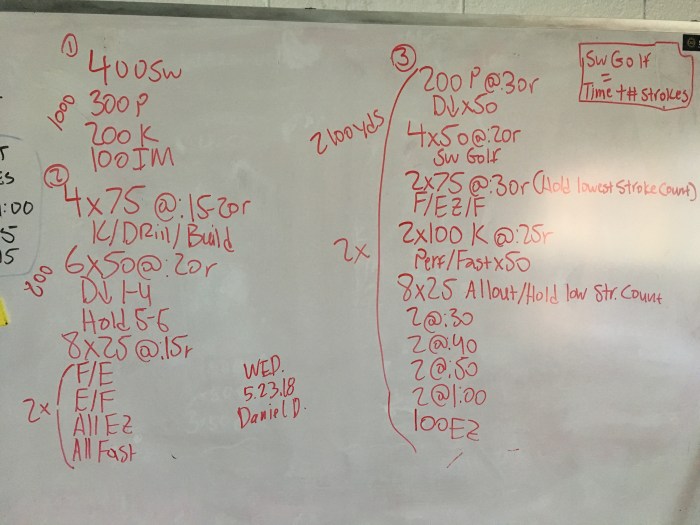 ①
400 SW
300 P
200 K
100 IM
1000
②
4x75 @:15-20r
K/Drill/Build
6x50@:20r
D↓ 1-4
Hold 5-6
8x25@:15r
F/E
E/F
All EZ
All Fast
2x
WED.
5.23.18
Daniel D.
③
200 P @:30r
D↓x50
4x50@:20r
SW Golf
2x75 @:30r (Hold lowest Stroke Count)
F/EZ/F
2x100 K @:25r
Perf/Fast x50
8x25 Allout/Hold low Str. Count
2@:30
2@:40
2@:50
2@1:00
100 EZ
2x
2100 yds
SW Golf
=
Time + # strokes
ES
:00
5
15